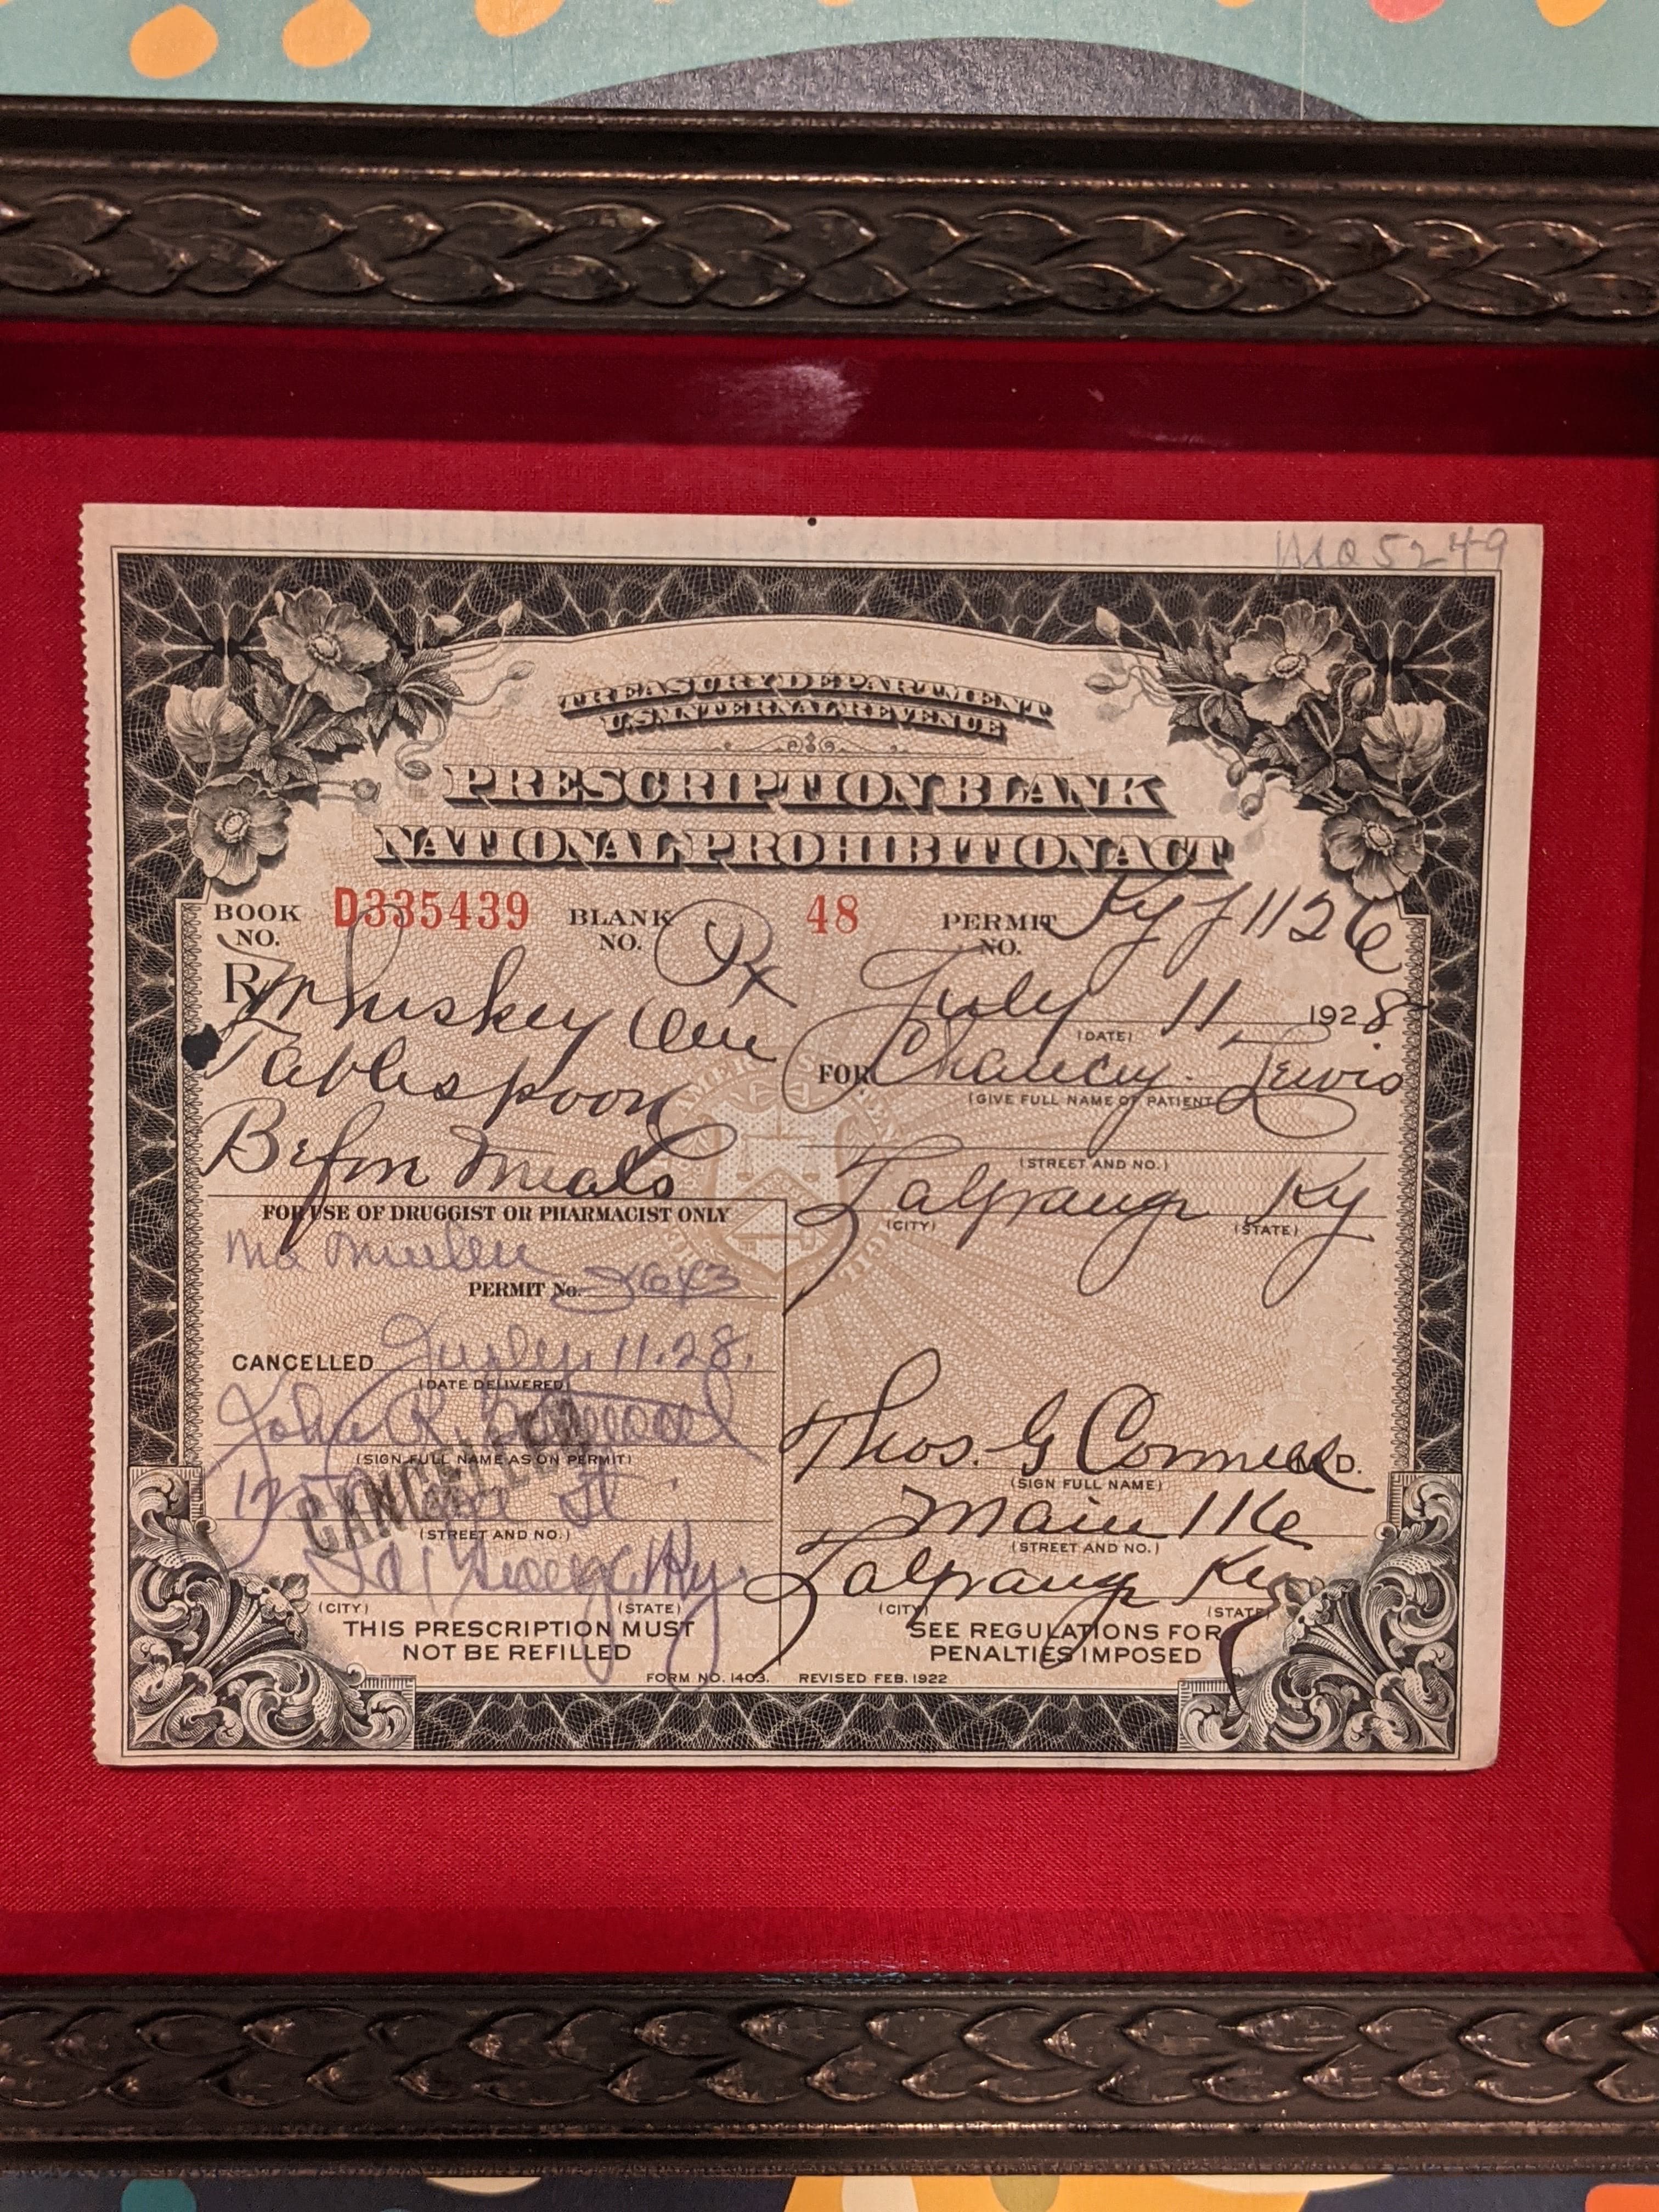 No 5249
TREASURY DEPARTMENT
U.S. INTERNAL REVENUE
PRESCRIPTION BLANK
NATIONAL PROHIBITION ACT
BOOK NO. D335439 BLANK NO. 48 PERMIT NO. Ky J 1126
Rx
R Whiskey
Tablespoon
Before Meals
July 11 1928
(DATE)
FOR Chancey Lewis
(GIVE FULL NAME OF PATIENT)
(STREET AND NO.)
Lagrange Ky
(CITY) (STATE)
FOR USE OF DRUGGIST OR PHARMACIST ONLY
PERMIT No.
CANCELLED July 11.28.
(DATE DELIVERED)
John R.
(SIGN FULL NAME AS ON PERMIT)
CANCELLED
St
(STREET AND NO.)
La Grange Ky.
(CITY) (STATE)
THIS PRESCRIPTION MUST
NOT BE REFILLED
Thos. G Connell M.D.
(SIGN FULL NAME)
Main 116
(STREET AND NO.)
Lagrange Ky
(CITY) (STATE)
SEE REGULATIONS FOR
PENALTIES IMPOSED
FORM NO. 1403. REVISED FEB. 1922